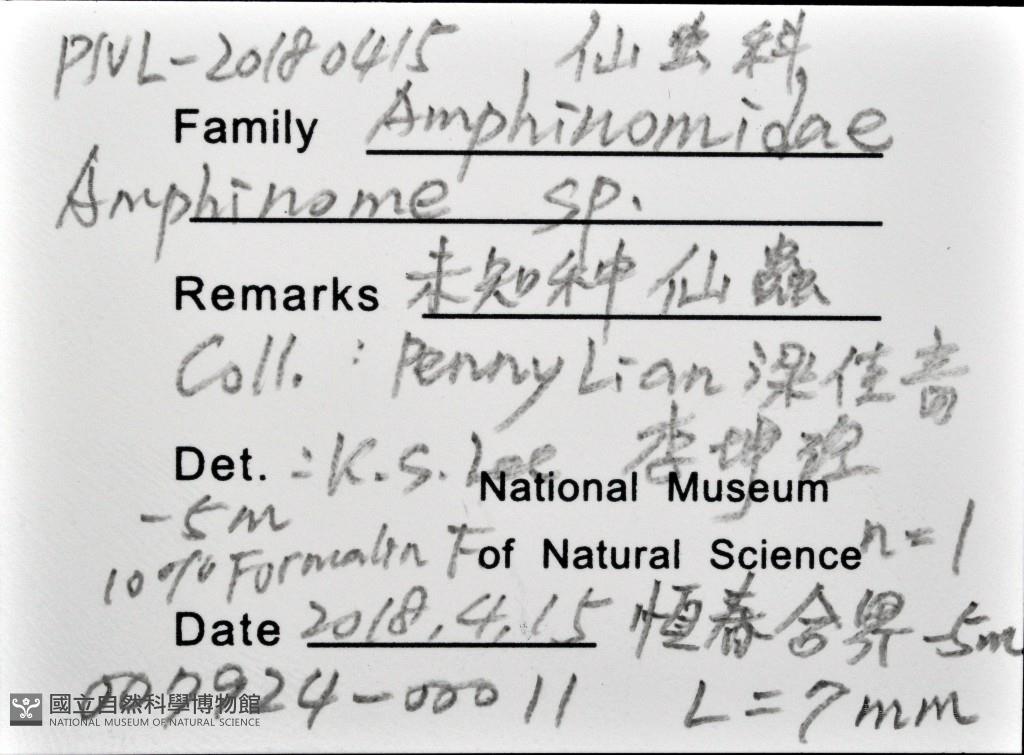 PIVL-20180415 仙虫科
Family Amphinomidae
Amphinome sp.
Remarks 未知种仙蟲
Coll. : Penny Lian 梁佳音
Det. : K.S. Lee 李坤瑄
National Museum
-5m
of Natural Science n=1
10% Formalin F
Date 2018.4.15 恒春合界 -5m
007924-00011 L=7mm
國立自然科學博物館
NATIONAL MUSEUM OF NATURAL SCIENCE